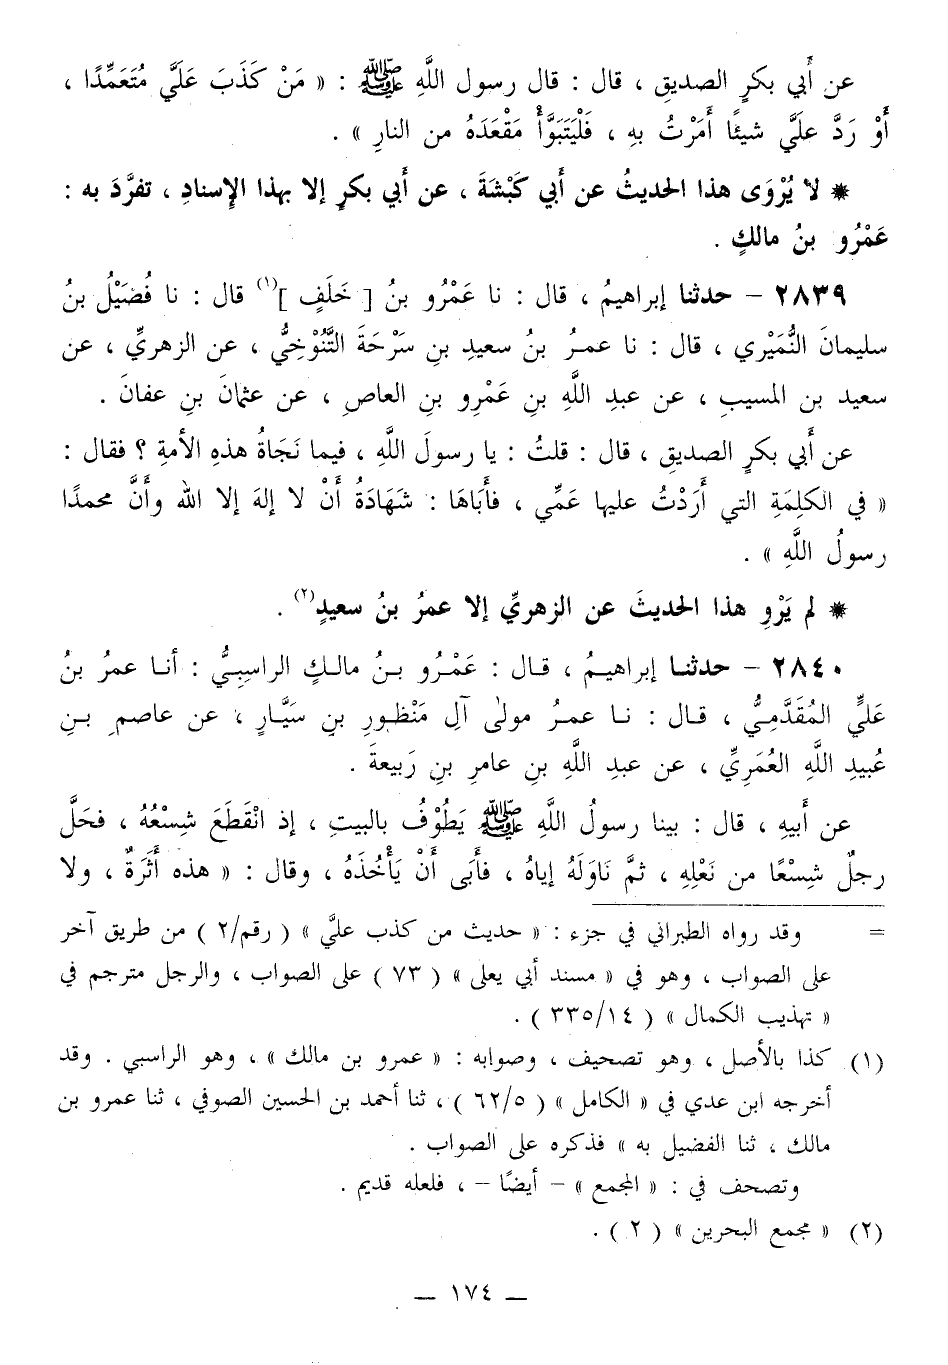 عن أَبي بكرٍ الصديقِ ، قال : قال رسول اللَّهِ ﷺ : « مَنْ كَذَبَ عَلَيَّ مُتَعَمِّدًا ،
أَوْ رَدَّ علَيَّ شيئًا أَمَرْتُ بهِ ، فَلْيَتَبَوَّأْ مَقْعَدَهُ من النارِ » .
* لا يُرْوَى هذا الحديثُ عن أَبي كَبْشَةَ ، عن أَبي بكرٍ إلا بهذا الإِسنادِ ، تفرَّدَ به :
عَمْرُو بنُ مالكٍ .
٢٨٣٩ – حدثنا إبراهيمُ ، قال : نا عَمْرُو بنُ [ خَلَفٍ ](١) قال : نا فُضَيْلُ بنُ
سليمانَ النُّمَيْري ، قال : نا عمرُ بنُ سعيدِ بنِ سَرْحَةَ التَّنُوْخِيُّ ، عن الزهريِّ ، عن
سعيد بن المسيبِ ، عن عبدِ اللَّهِ بنِ عَمْرِو بنِ العاصِ ، عن عثمانَ بنِ عفانَ .
عن أَبي بكرٍ الصديقِ ، قال : قلتُ : يا رسولَ اللَّهِ ، فيما نَجَاةُ هذهِ الأمةِ ؟ فقال :
« في الكلِمَةِ التي أَرَدْتُ عليها عَمِّي ، فأَبَاهَا : شَهَادَةُ أَنْ لا إلهَ إلا الله وأَنَّ محمدًا
رسولُ اللَّهِ » .
* لم يَرْوِ هذا الحديثَ عن الزهريِّ إلا عمرُ بنُ سعيدٍ(٢) .
٢٨٤٠ – حدثنا إبراهيمُ ، قال : عَمْرُو بنُ مالكٍ الراسبيُّ : أنا عمرُ بنُ
عَليٍّ المُقَدَّمِيُّ ، قال : نا عمرُ مولى آلِ مَنْظورِ بنِ سَيَّارٍ ، عن عاصمِ بنِ
عُبيدِ اللَّهِ العُمَرِيِّ ، عن عبدِ اللَّهِ بنِ عامرِ بنِ رَبيعةَ .
عن أَبيهِ ، قال : بينا رسولُ اللَّهِ ﷺ يَطُوْفُ بالبيتِ ، إذ انْقَطَعَ شِسْعُهُ ، فحَلَّ
رجلٌ شِسْعًا من نَعْلِهِ ، ثمَّ نَاوَلَهُ إياهُ ، فأَبَى أَنْ يَأْخُذَهُ ، وقال : « هذه أَثَرَةٌ ، ولا
= وقد رواه الطبراني في جزء : « حديث من كذب عليَّ » ( رقم/٢ ) من طريق آخر
على الصواب ، وهو في « مسند أبي يعلى » ( ٧٣ ) على الصواب ، والرجل مترجم في
« تهذيب الكمال » ( ٣٣٥/١٤ ) .
(١) كذا بالأصل ، وهو تصحيف ، وصوابه : « عمرو بن مالك » ، وهو الراسبي . وقد
أخرجه ابن عدي في « الكامل » ( ٦٢/٥ ) ، ثنا أحمد بن الحسين الصوفي ، ثنا عمرو بن
مالك ، ثنا الفضيل به » فذكره على الصواب .
وتصحف في : « المجمع » – أيضًا – ، فلعله قديم .
(٢) « مجمع البحرين » ( ٢ ) .
— ١٧٤ —